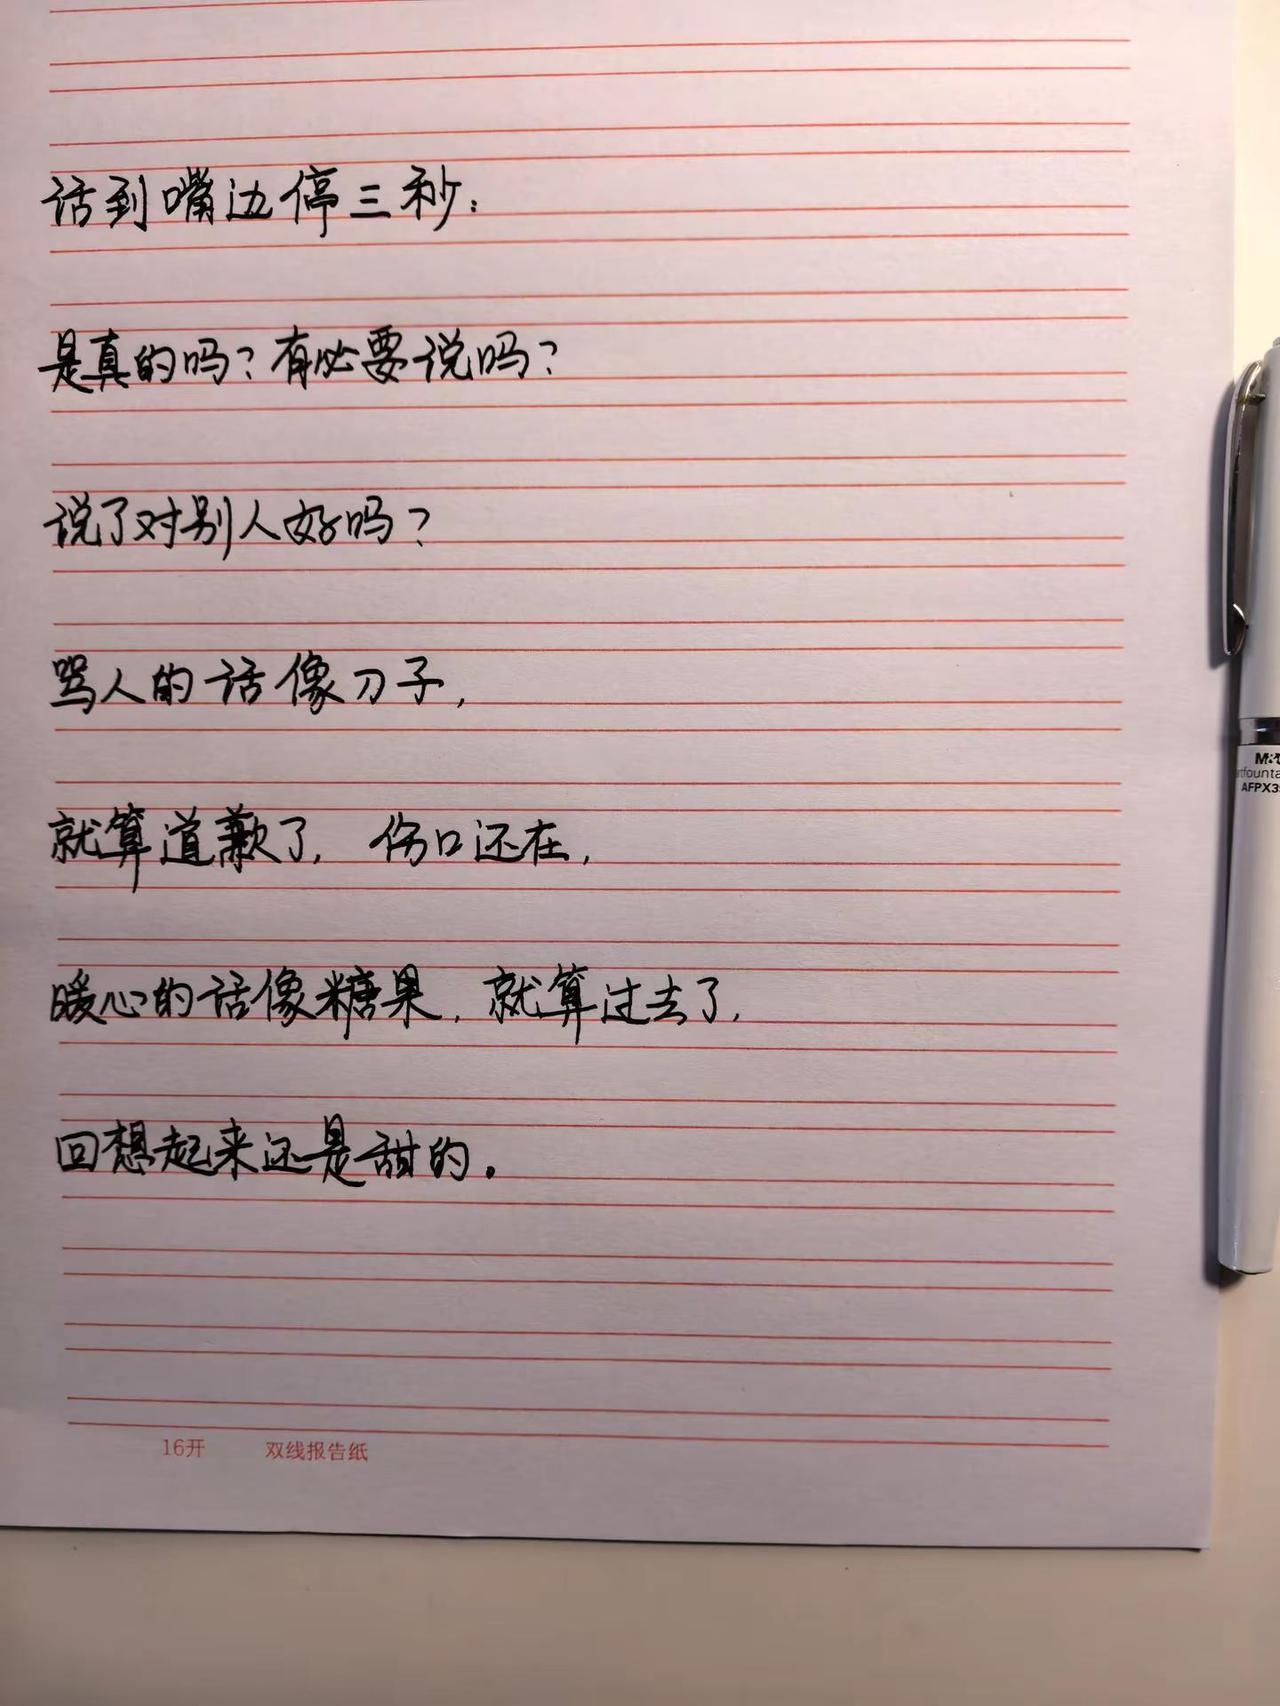 话到嘴边停三秒：
是真的吗？有必要说吗？
说了对别人好吗？
骂人的话像刀子，
就算道歉了，伤口还在，
暖心的话像糖果，就算过去了，
回想起来还是甜的。
16开 双线报告纸
AFPX3